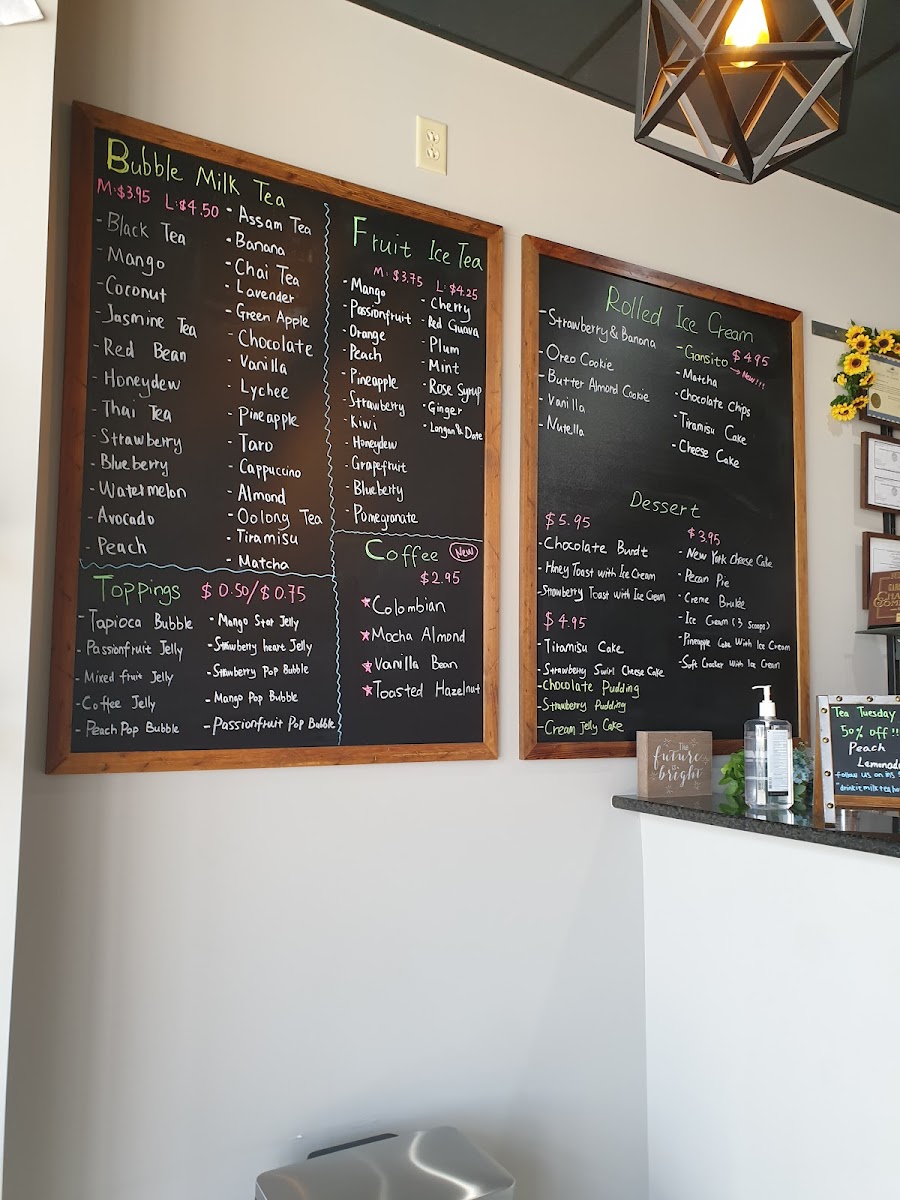 Bubble Milk Tea
M:$3.95 L:$4.50
-Black Tea
-Mango
-Coconut
-Jasmine Tea
-Red Bean
-Honeydew
-Thai Tea
-Strawberry
-Blueberry
-Watermelon
-Avocado
-Peach
-Assam Tea
-Banana
-Chai Tea
-Lavender
-Green Apple
-Chocolate
-Vanilla
-Lychee
-Pineapple
-Taro
-Cappuccino
-Almond
-Oolong Tea
-Tiramisu
-Matcha
Toppings $0.50/$0.75
-Tapioca Bubble
-Passionfruit Jelly
-Mixed fruit Jelly
-Coffee Jelly
-Peach Pop Bubble
-Mango Star Jelly
-Strawberry heart Jelly
-Strawberry Pop Bubble
-Mango Pop Bubble
-Passionfruit Pop Bubble
Fruit Ice Tea
M:$3.75 L:$4.25
-Mango
-Passionfruit
-Orange
-Peach
-Pineapple
-Strawberry
-Kiwi
-Honeydew
-Grapefruit
-Blueberry
-Pomegranate
-Cherry
-Red Guava
-Plum
-Mint
-Rose Syrup
-Ginger
-Longan & Date
Coffee New
$2.95
Colombian
Mocha Almond
Vanilla Bean
Toasted Hazelnut
Rolled Ice Cream
$4.95
-Strawberry & Banana
-Oreo Cookie
-Butter Almond Cookie
-Vanilla
-Nutella
-Gansito → New!!!
-Matcha
-Chocolate Chips
-Tiramisu Cake
-Cheese Cake
Dessert
$5.95
-Chocolate Bundt
-Honey Toast with Ice Cream
-Strawberry Toast with Ice Cream
$4.95
-Tiramisu Cake
-Strawberry Swirl Cheese Cake
-Chocolate Pudding
-Strawberry Pudding
-Cream Jelly Cake
$3.95
-New York Cheese Cake
-Pecan Pie
-Creme Brulee
-Ice Cream (3 Scoops)
-Pineapple Cake With Ice Cream
-Soft Cracker With Ice Cream
The
future
is
bright
Tea Tuesday
50% off!!
Peach
Lemonade
follow us on ins